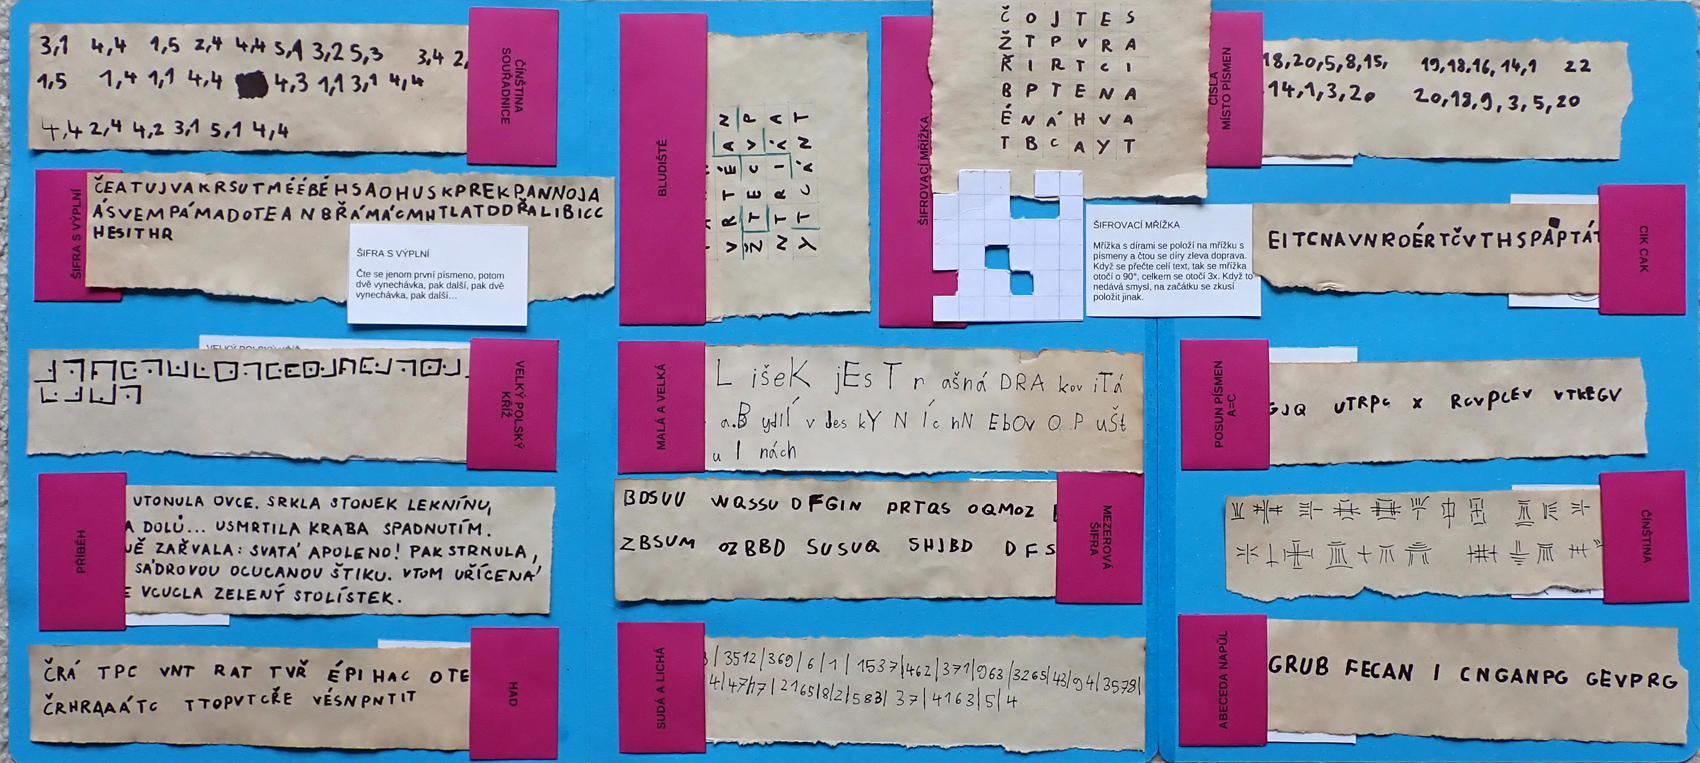 3,1 4,4 1,5 2,4 4,4 5,1 3,2 5,3 3,4 2,
1,5 1,4 1,1 4,4 4,3 1,1 3,1 4,4
4,4 2,4 4,2 3,1 5,1 4,4
ČÍNŠTINA
SOUŘADNICE
ŠIFRA S VÝPLNÍ
ČEATUJVAKRSUTMÉÉBÉHSAOHUSKPREKPANNOJA
ÁSVEMPÁMADOTEANBŘÁMÁCMHTLATDDŘALIBICC
HESITHR
ŠIFRA S VÝPLNÍ
Čte se jenom první písmeno, potom
dvě vynechávka, pak další, pak dvě
vynechávka, pak další...
VELKÝ POLSKÝ
KŘÍŽ
PŘÍBĚH
UTONULA OVCE. SRKLA STONEK LEKNÍNU,
A DOLŮ... USMRTILA KRABA SPADNUTÍM.
ZAŘVALA: SVATÁ APOLENO! PAK STRNULA,
SÁDROVOU OCUCANOU ŠTIKU. VTOM UŘÍCENÁ
VCUCLA ZELENÝ STOLÍSTEK.
ČRÁ TPC VNT RAT TVŘ ÉPI HAC OTE
ČRHRAAÁTC TTOPVTCŘE VÉSNPNTIT
HAD
BLUDIŠTĚ
VRTÉAN
ŽTECVP
NTRIÁA
YTCÁNT
ŠIFROVACÍ MŘÍŽKA
ČOJTES
ŽTPVRA
ŘIRTCI
BPTENA
ÉNÁHVA
TBCAYT
ŠIFROVACÍ MŘÍŽKA
Mřížka s dírami se položí na mřížku s
písmeny a čtou se díry zleva doprava.
Když se přečte celí text, tak se mřížka
otočí o 90°, celkem se otočí 3x. Když to
nedává smysl, na začátku se zkusí
položit jinak.
MALÁ A VELKÁ
L išeK jEs T r ašná DRA kov iTá
a.B ydlÍ v Jes kY N Íc hN EbOv O P uŠt
u I nách
BDSUU WQSSU DFGIN PRTQS OQMOZ
ZBSUM OZBBD SUSUQ SHJBD DFS
MEZEROVÁ
ŠIFRA
SUDÁ A LICHÁ
3512/369/6/1/1537/462/371/963/3265/43/94/3578/
4/4747/2165/8/2/583/37/4163/5/4
ČÍSLA
MÍSTO PÍSMEN
18,20,5,8,15, 19,18,16,14,1 22
14,1,3,20 20,18,9,3,5,20
EITCNAVNROÉRTČVTHSPÁPTÁT
CIK CAK
POSUN PÍSMEN
A=C
GJQ UTRPC X RCVPCEV VTKEGV
ČÍNŠTINA
ABECEDA NAPŮL
GRUB FECAN I CNGANPG GEVPRG